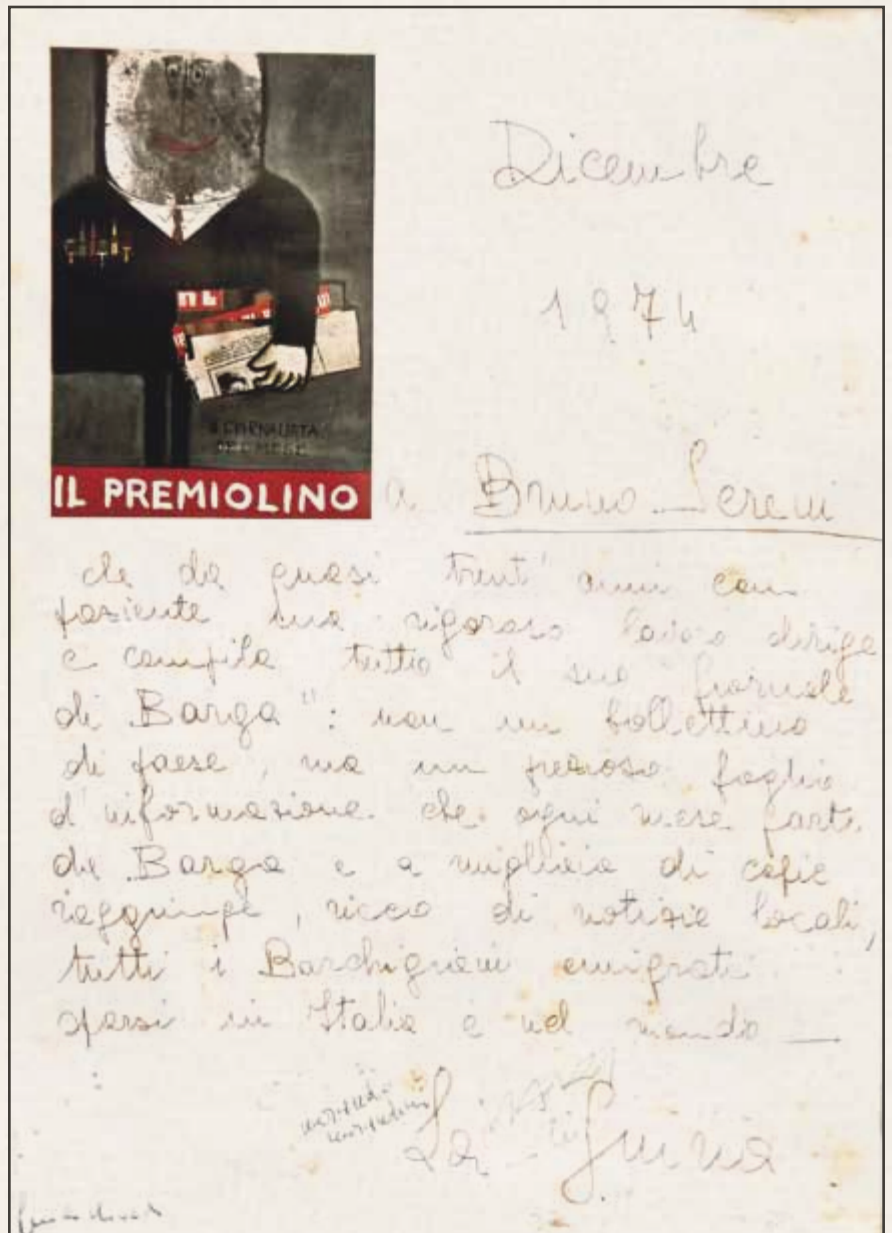 Dicembre
1974
IL GIORNALISTA
DEL MESE
IL PREMIOLINO
a Bruno Sereni
che da quasi trent'anni con
paziente ma rigoroso lavoro dirige
e compila tutto il suo "Giornale
di Barga": non un bollettino
di paese, ma un prezioso foglio
d'informazione che ogni mese parte
da Barga e a migliaia di copie
raggiunge, ricco di notizie locali,
tutti i Barghigiani emigrati
sparsi in Italia e nel mondo —
La Giuria